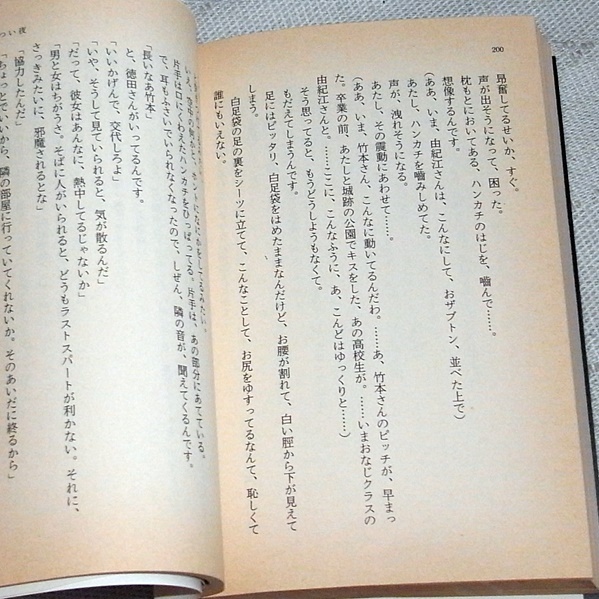 200
昂奮してるせいか、すぐ。
声が出そうになって、困った。
枕もとにおいてある、ハンカチのはじを、嚙んで……。
想像するんです。
（ああ、いま、由紀江さんは、こんなにして、おザブトン、並べた上で）
あたし、ハンカチを嚙みしめてた。
声が、洩れそうになる。
あたし、その震動にあわせて……。
（ああ、いま、竹本さん、こんなに動いてるんだわ。……あ、竹本さんのピッチが、早まっ
た。卒業の前、あたしと城跡の公園でキスをした、あの高校生が。……いまおなじクラスの
由紀江さんと。……ここに、こんなふうに、あ、こんどはゆっくりと……）
そう思ってると、もうどうしようもなくて。
もだえてしまうんです。
足にはピッタリ、白足袋をはめたままなんだけど、お腰が割れて、白い脛から下が見えて
しまう。
白足袋の足の裏をシーツに立てて、こんなことして、お尻をゆすってるなんて、恥しくて
誰にもいえない。
片手は口にくわえたハンカチをひっぱってる。片手は、あの部分にあてている。
で、耳もふさいでいられなくなったので、しぜん、隣の音が、聞えてくるんです。
と、徳田さんがいってるんです。
「長いなあ竹本」
「いいかげんで、交代しろよ」
「いや、そうして見ていられると、気が散るんだ」
「だって、彼女はあんなに、熱中してるじゃないか」
「男と女はちがうさ。そばに人がいられると、どうもラストスパートが利かない。それに、
さっきみたいに、邪魔されるとな」
「協力したんだ」
「ちょっとでいいから、隣の部屋に行っていてくれないか。そのあいだに終るから」